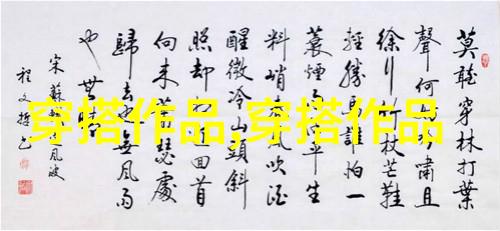 穿搭作品,穿搭作品
莫聽穿林打葉
聲何嘯且
徐行竹杖芒鞋
輕勝誰怕一
蓑煙平生
料峭風吹酒
醒微冷山頭斜
照却迎回首
向来瑟處
歸去無風雨
也無晴
宋蘇風波
程文